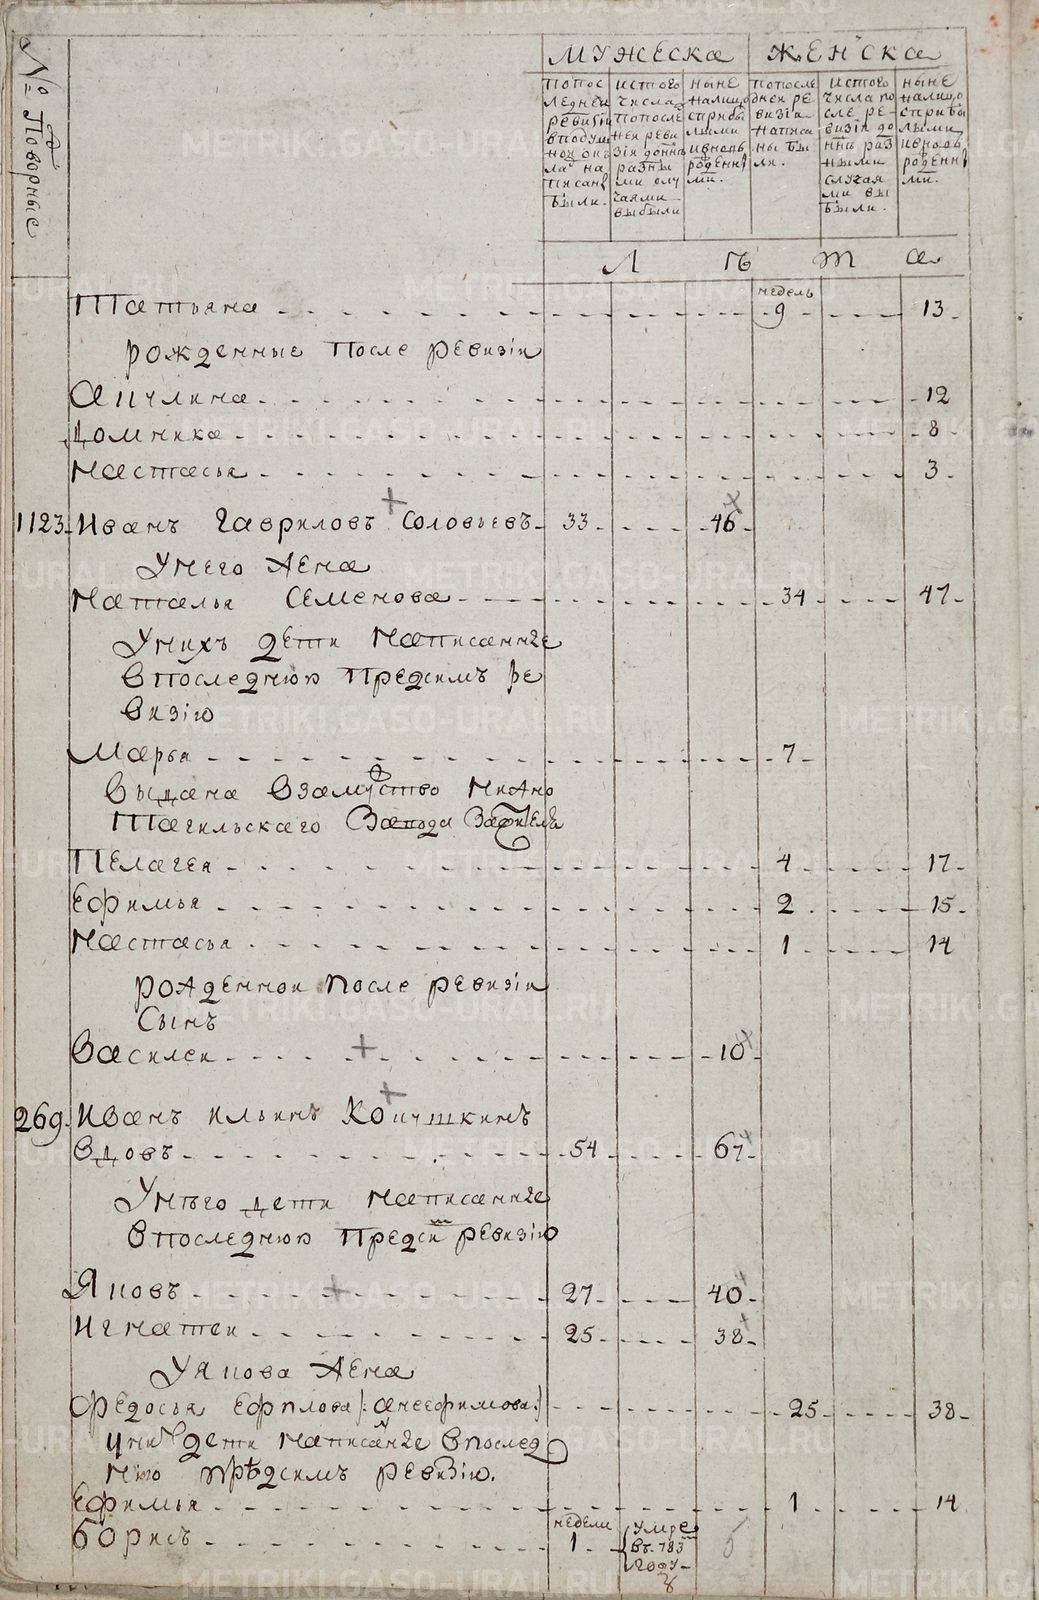 № Подворные
МУЖЕСКА ЖЕНСКА
ПОПОС
ЛЕДНЕЙ
РЕВИЗІИ
ВПОДУШ
НОЙ ОК
ЛАД НА
ПИСАНЫ
БЫЛИ.
ИСТОГО
ЧИСЛА
ПОПОСЛЕ
НЕЙ РЕВИ
ЗІИ ДОННѢ
РАЗНЫ
МИ СЛУ
ЧАЯМИ
ВЫБЫЛИ
НЫНЕ
НАЛИЦО
СПРИБЫ
ЛЫМИ
ИВНОВЬ
РОЖДЕННЫ
МИ.
ПОПОСЛЕ
ДНЕЙ РЕ
ВИЗІИ
НАПИСА
НЫ БЫ
ЛИ.
ИСТОГО
ЧИСЛА ПО
СЛЕ РЕ-
ВИЗІИ ДО
ННѢ РАЗ
НЫМИ
СЛУЧАЯ
МИ ВЫ
БЫЛИ.
НЫНЕ
НАЛИЦО
СПРИБЫ
ЛЫМИ
ИВНОВЬ
РОЖДЕННЫ
МИ.
Л Ѣ Т А
Татьяна недель 9 13
рожденные после ревизіи
Акулина 12
Домника 8
Настасья 3
1123. Иванъ Гавриловъ Соловьевъ 33 46
Унего жена
Наталья Семенова 34 47
Унихъ дети написанные
впоследнюю предсимъ ре
визію
Марья 7
Выдана взамуство Нижно
Тагильскаго Завода
Пелагея 4 17
Ефимья 2 15
Настасья 1 14
рожденной после ревизіи
Сынъ
Василей 10
269. Иванъ Ильинъ Кокушкинъ
Вдовъ 54 67
Унѣго дети написанные
впоследнюю предси^м ревизію
Яковъ 27 40
Игнатей 25 38
Уякова жена
Федосья Ефилова /:Анеефимова:/ 25 38
Уни^х дети написанные впослед
нюю прѣдсимъ ревизію.
Ефимья 1 14
Борисъ недели 1 умре
въ 783^м
году